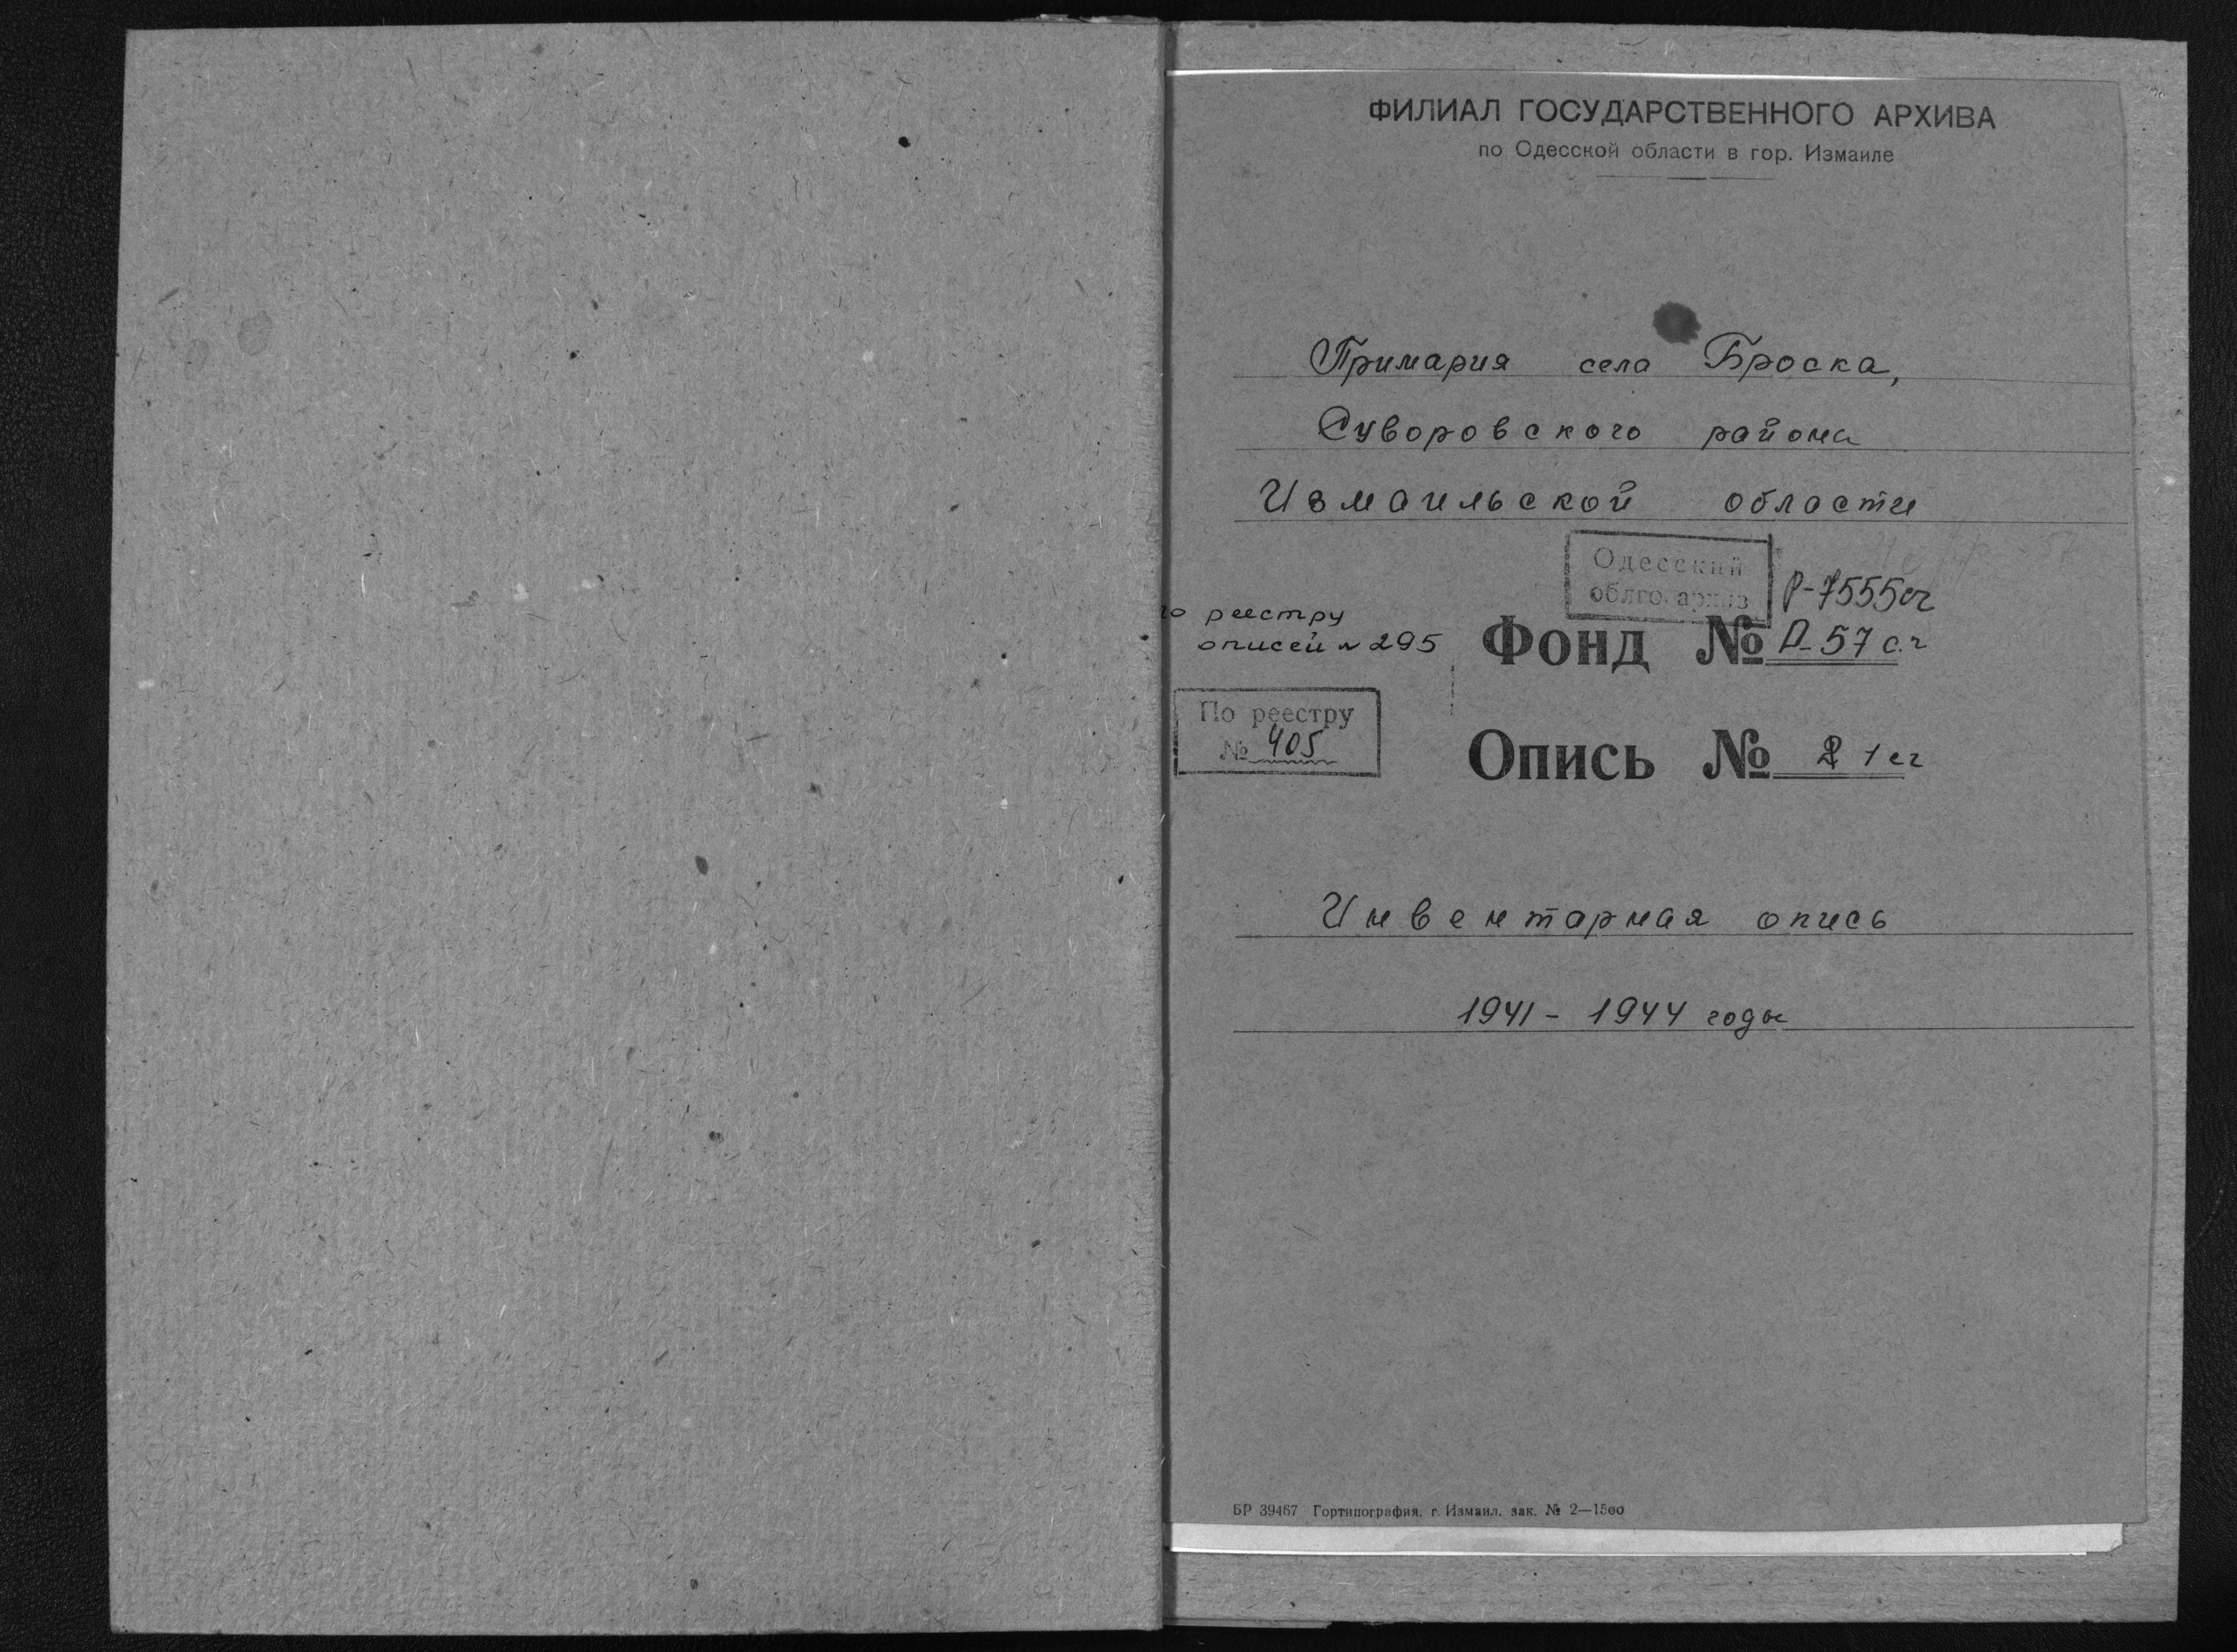 ФИЛИАЛ ГОСУДАРСТВЕННОГО АРХИВА
по Одесской области в гор. Измаиле
Примария села Броска,
Суворовского района
Измаильской области
Одесский
Р-7555сч
реестру
описей № 295
Фонд № П-57 с.ч
По реестру
№ 405
Опись № 1 сч
Инвентарная опись
1941 - 1944 годы
БР 39467 Гортипография, г. Измаил, зак. № 2—1500